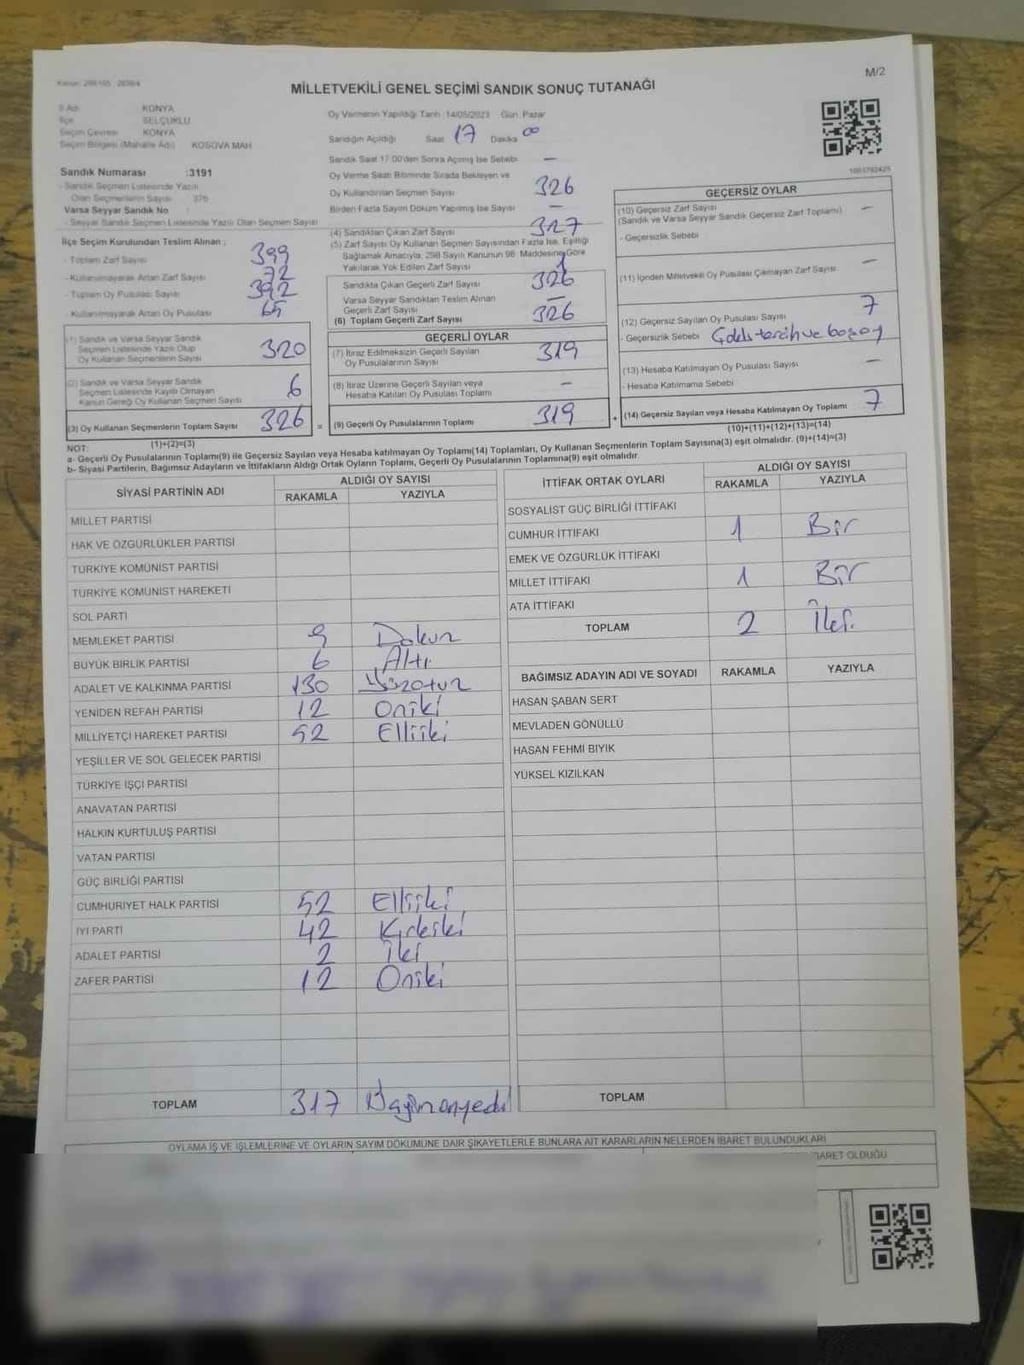 M/2
MİLLETVEKİLİ GENEL SEÇİMİ SANDIK SONUÇ TUTANAĞI
İl Adı : KONYA
İlçe : SELÇUKLU
Seçim Çevresi : KONYA
Seçim Bölgesi (Mahalle Adı) : KOSOVA MAH.
Oy Vermenin Yapıldığı Tarih : 14/05/2023 Gün: Pazar
Sandığın Açıldığı Saat 17 Dakika 00
Sandık Saat 17:00'den Sonra Açılmış İse Sebebi —
Oy Verme Saati Bitiminde Sırada Bekleyen ve
Oy Kullandırılan Seçmen Sayısı 326
Birden Fazla Sayım Döküm Yapılmış İse Sayısı —
Sandık Numarası :3191
- Sandık Seçmen Listesinde Yazılı
Olan Seçmenlerin Sayısı : 376
Varsa Seyyar Sandık No :
- Seyyar Sandık Seçmen Listesinde Yazılı Olan Seçmen Sayısı :
İlçe Seçim Kurulundan Teslim Alınan ;
- Toplam Zarf Sayısı 399
- Kullanılmayarak Artan Zarf Sayısı 72
- Toplam Oy Pusulası Sayısı 392
- Kullanılmayarak Artan Oy Pusulası 65
(1) Sandık ve Varsa Seyyar Sandık
Seçmen Listesinde Yazılı Olup
Oy Kullanan Seçmenlerin Sayısı 320
(2) Sandık ve Varsa Seyyar Sandık
Seçmen Listesinde Kayıtlı Olmayan
Kanun Gereği Oy Kullanan Seçmen Sayısı 6
(3) Oy Kullanan Seçmenlerin Toplam Sayısı 326
(1)+(2)=(3)
(4) Sandıktan Çıkan Zarf Sayısı 327
(5) Zarf Sayısı Oy Kullanan Seçmen Sayısından Fazla İse, Eşitliği
Sağlamak Amacıyla, 298 Sayılı Kanunun 98. Maddesine Göre
Yakılarak Yok Edilen Zarf Sayısı 1
Sandıkta Çıkan Geçerli Zarf Sayısı 326
Varsa Seyyar Sandıktan Teslim Alınan
Geçerli Zarf Sayısı —
(6) Toplam Geçerli Zarf Sayısı 326
GEÇERLİ OYLAR
(7) İtiraz Edilmeksizin Geçerli Sayılan
Oy Pusulalarının Sayısı 319
(8) İtiraz Üzerine Geçerli Sayılan veya
Hesaba Katılan Oy Pusulası Toplamı —
= (9) Geçerli Oy Pusulalarının Toplamı 319
GEÇERSİZ OYLAR
(10) Geçersiz Zarf Sayısı —
(Sandık ve Varsa Seyyar Sandık Geçersiz Zarf Toplamı)
- Geçersizlik Sebebi
(11) İçinden Milletvekili Oy Pusulası Çıkmayan Zarf Sayısı —
(12) Geçersiz Sayılan Oy Pusulası Sayısı 7
- Geçersizlik Sebebi
(13) Hesaba Katılmayan Oy Pusulası Sayısı —
- Hesaba Katılmama Sebebi
+ (14) Geçersiz Sayılan veya Hesaba Katılmayan Oy Toplamı 7
(10)+(11)+(12)+(13)=(14)
NOT:
a- Geçerli Oy Pusulalarının Toplamı(9) ile Geçersiz Sayılan veya Hesaba katılmayan Oy Toplamı(14) Toplamları, Oy Kullanan Seçmenlerin Toplam Sayısına(3) eşit olmalıdır. (9)+(14)=(3)
b- Siyasi Partilerin, Bağımsız Adayların ve İttifakların Aldığı Ortak Oyların Toplamı, Geçerli Oy Pusulalarının Toplamına(9) eşit olmalıdır.
SİYASİ PARTİNİN ADI ALDIĞI OY SAYISI
RAKAMLA YAZIYLA
MİLLET PARTİSİ
HAK VE ÖZGÜRLÜKLER PARTİSİ
TÜRKİYE KOMÜNİST PARTİSİ
TÜRKİYE KOMÜNİST HAREKETİ
SOL PARTİ
MEMLEKET PARTİSİ 9 Dokuz
BÜYÜK BİRLİK PARTİSİ 6 Altı
ADALET VE KALKINMA PARTİSİ 130 Yüzotuz
YENİDEN REFAH PARTİSİ 12 Oniki
MİLLİYETÇİ HAREKET PARTİSİ 52 Elliiki
YEŞİLLER VE SOL GELECEK PARTİSİ
TÜRKİYE İŞÇİ PARTİSİ
ANAVATAN PARTİSİ
HALKIN KURTULUŞ PARTİSİ
VATAN PARTİSİ
GÜÇ BİRLİĞİ PARTİSİ
CUMHURİYET HALK PARTİSİ 52 Elliiki
İYİ PARTİ 42 Kırkiki
ADALET PARTİSİ 2 İki
ZAFER PARTİSİ 12 Oniki
TOPLAM 317
İTTİFAK ORTAK OYLARI ALDIĞI OY SAYISI
RAKAMLA YAZIYLA
SOSYALİST GÜÇ BİRLİĞİ İTTİFAKI
CUMHUR İTTİFAKI 1 Bir
EMEK VE ÖZGÜRLÜK İTTİFAKI
MİLLET İTTİFAKI 1 Bir
ATA İTTİFAKI
TOPLAM 2 İki
BAĞIMSIZ ADAYIN ADI VE SOYADI RAKAMLA YAZIYLA
HASAN ŞABAN SERT
MEVLADEN GÖNÜLLÜ
HASAN FEHMİ BIYIK
YÜKSEL KIZILKAN
TOPLAM
OYLAMA İŞ VE İŞLEMLERİNE VE OYLARIN SAYIM DÖKÜMÜNE DAİR ŞİKAYETLERLE BUNLARA AİT KARARLARIN NELERDEN İBARET BULUNDUKLARI
BARET OLDUĞU